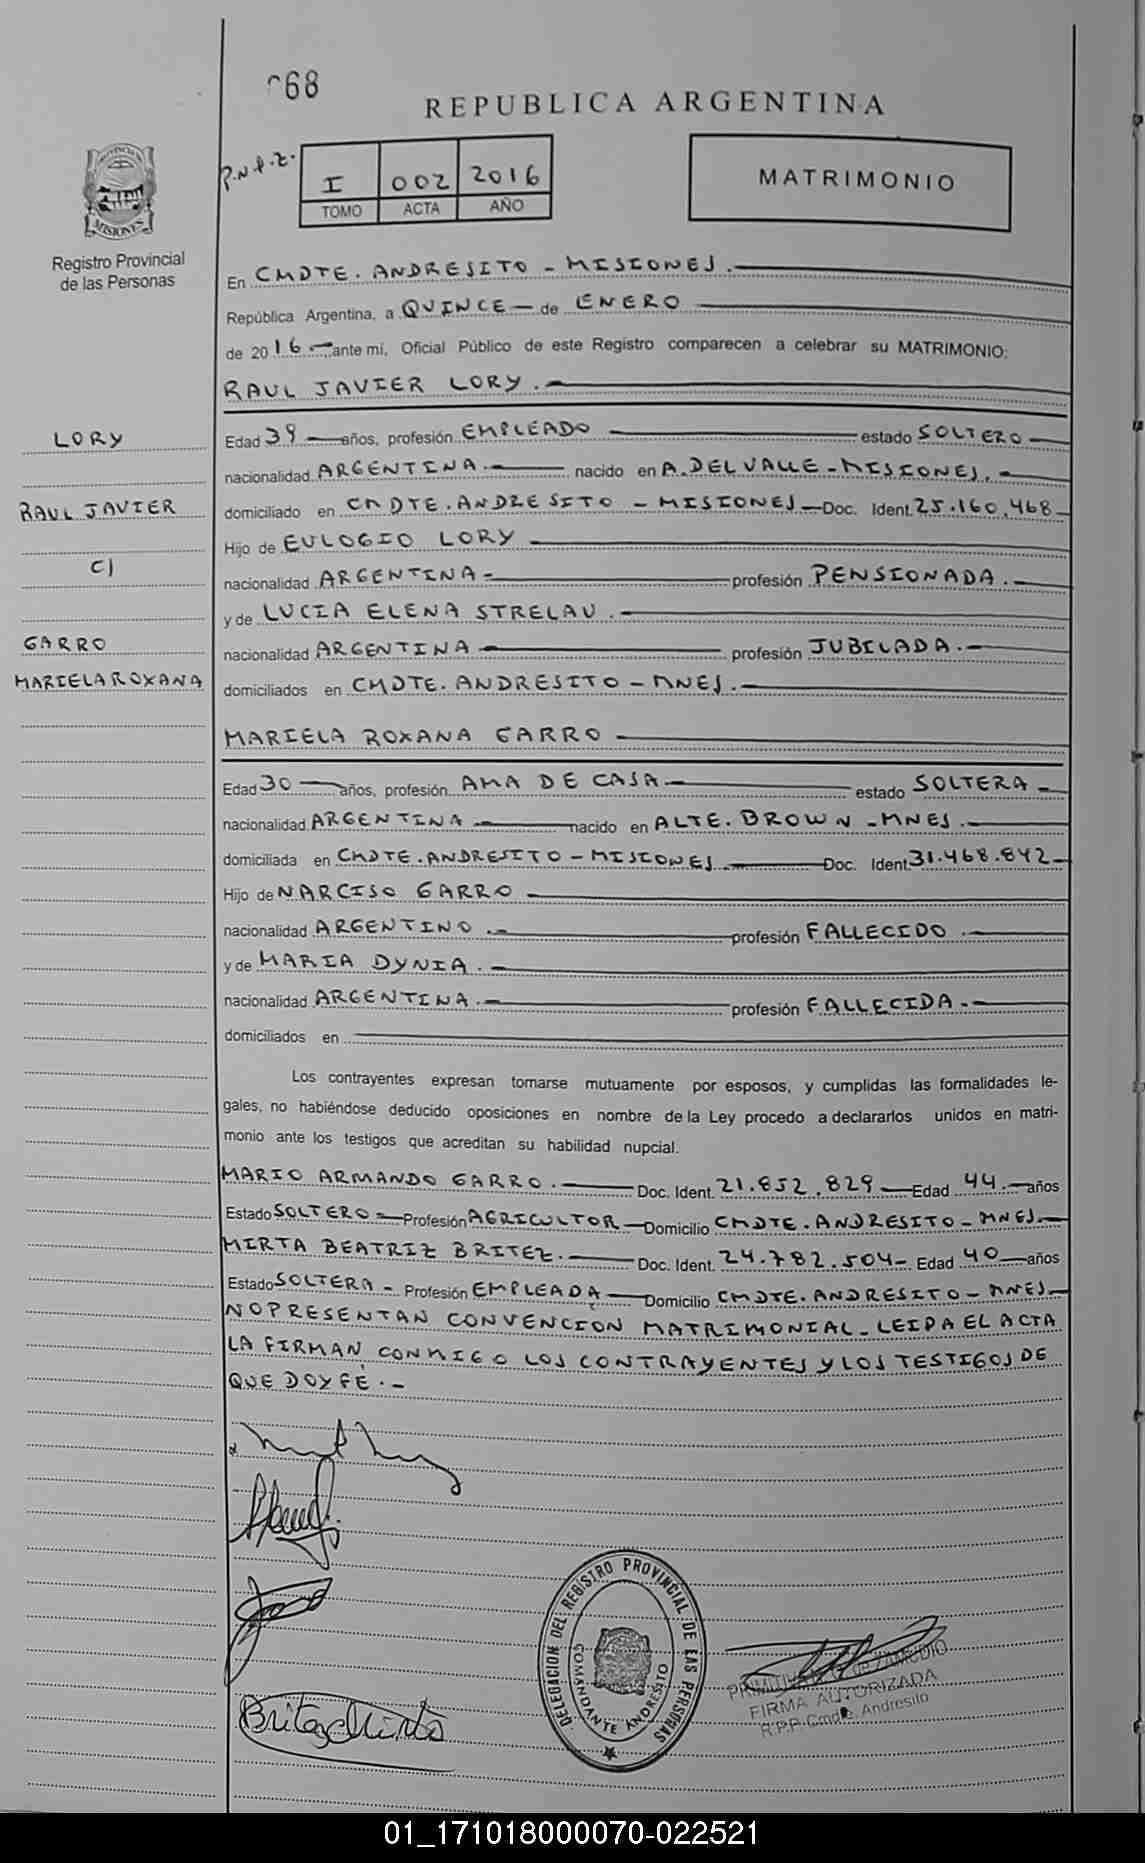 068
REPUBLICA ARGENTINA
P.N.P.Z.
I 002 2016
TOMO ACTA AÑO
MATRIMONIO
PROVINCIA DE
MISIONES
Registro Provincial
de las Personas
En CMDTE. ANDRESITO - MISIONES.
República Argentina, a QUINCE de ENERO
de 2016 ante mí, Oficial Público de este Registro comparecen a celebrar su MATRIMONIO:
RAUL JAVIER LORY.
LORY
RAUL JAVIER
C/
GARRO
MARIELA ROXANA
Edad 39 años, profesión EMPLEADO estado SOLTERO
nacionalidad ARGENTINA. nacido en A. DEL VALLE - MISIONES.
domiciliado en CMDTE. ANDRESITO - MISIONES Doc. Ident. 25.160.468
Hijo de EULOGIO LORY
nacionalidad ARGENTINA- profesión PENSIONADA.
y de LUCIA ELENA STRELAU.
nacionalidad ARGENTINA profesión JUBILADA.
domiciliados en CMDTE. ANDRESITO - MNES.
MARIELA ROXANA GARRO
Edad 30 años, profesión AMA DE CASA estado SOLTERA
nacionalidad ARGENTINA nacido en ALTE. BROWN - MNES.
domiciliada en CMDTE. ANDRESITO - MISIONES Doc. Ident 31.468.842
Hijo de NARCISO GARRO
nacionalidad ARGENTINO. profesión FALLECIDO.
y de MARIA DYNIA.
nacionalidad ARGENTINA. profesión FALLECIDA.
domiciliados en
Los contrayentes expresan tomarse mutuamente por esposos, y cumplidas las formalidades le-
gales, no habiéndose deducido oposiciones en nombre de la Ley procedo a declararlos unidos en matri-
monio ante los testigos que acreditan su habilidad nupcial.
MARIO ARMANDO GARRO. Doc. Ident. 21.852.829 Edad 44 años
Estado SOLTERO Profesión AGRICULTOR Domicilio CMDTE. ANDRESITO - MNES.
MIRTA BEATRIZ BRITEZ. Doc. Ident. 24.782.504 Edad 40 años
Estado SOLTERA Profesión EMPLEADA Domicilio CMDTE. ANDRESITO - MNES.
NO PRESENTAN CONVENCION MATRIMONIAL - LEIDA EL ACTA
LA FIRMAN CONMIGO LOS CONTRAYENTES Y LOS TESTIGOS DE
QUE DOY FE. -
Britez Mirta
DELEGACION DEL REGISTRO PROVINCIAL DE LAS PERSONAS
COMANDANTE ANDRESITO
ZAMUDIO
FIRMA AUTORIZADA
R.P.P. Cmdte. Andresito
01_171018000070-022521